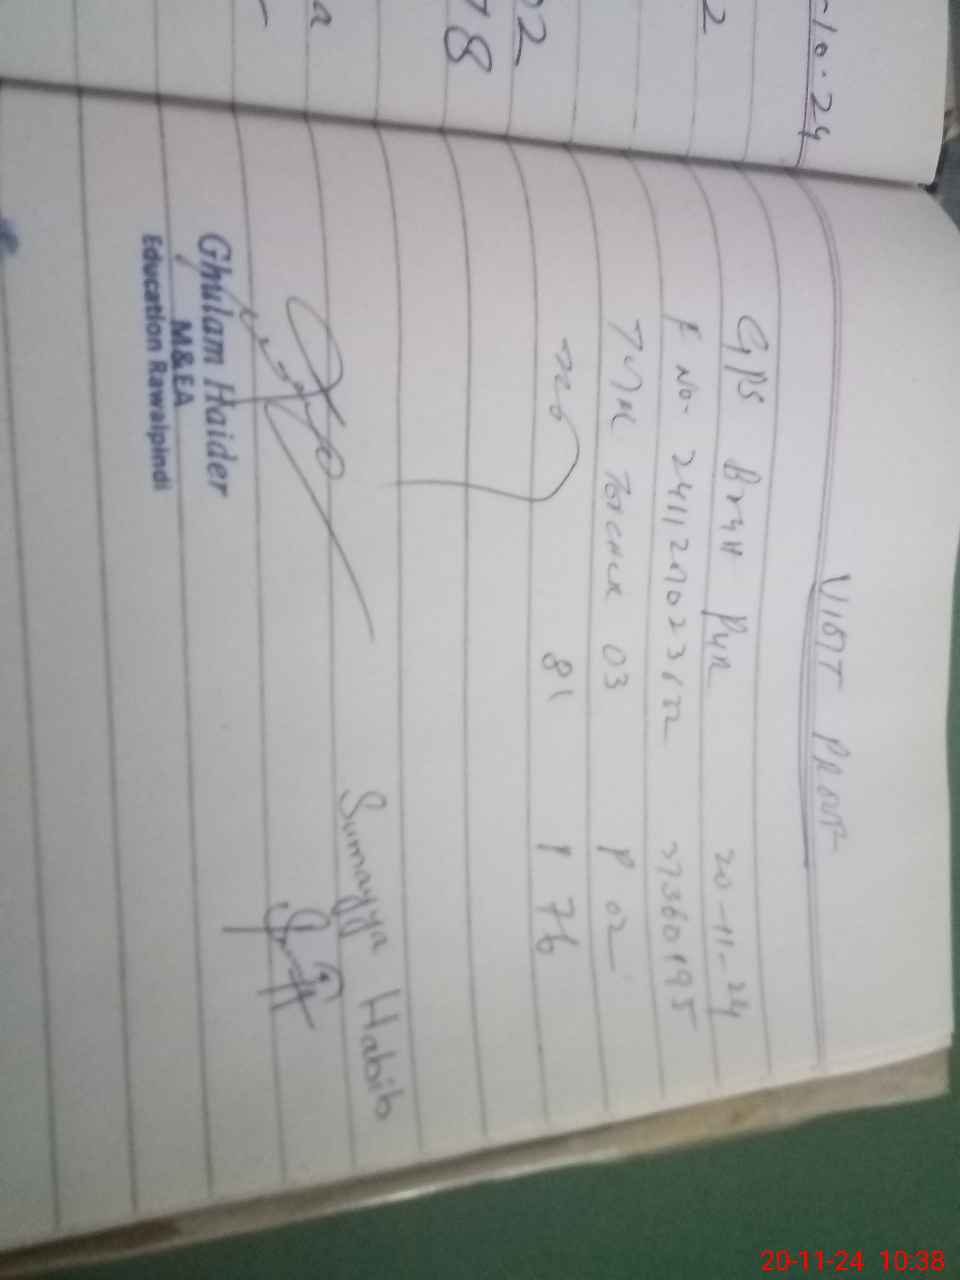 -10.24
2
02
78
a
VISIT PROOF
GPS Brah Pur 20-11-24
F No- 24112702312 37360195
Teacher 03 P 02
81 P 76
Sumayya Habib
Ghulam Haider
M&EA
Education Rawalpindi
20-11-24 10:38